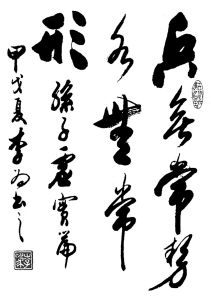 兵無常勢
水無常
形 孫子虛實篇
甲戌夏李書之